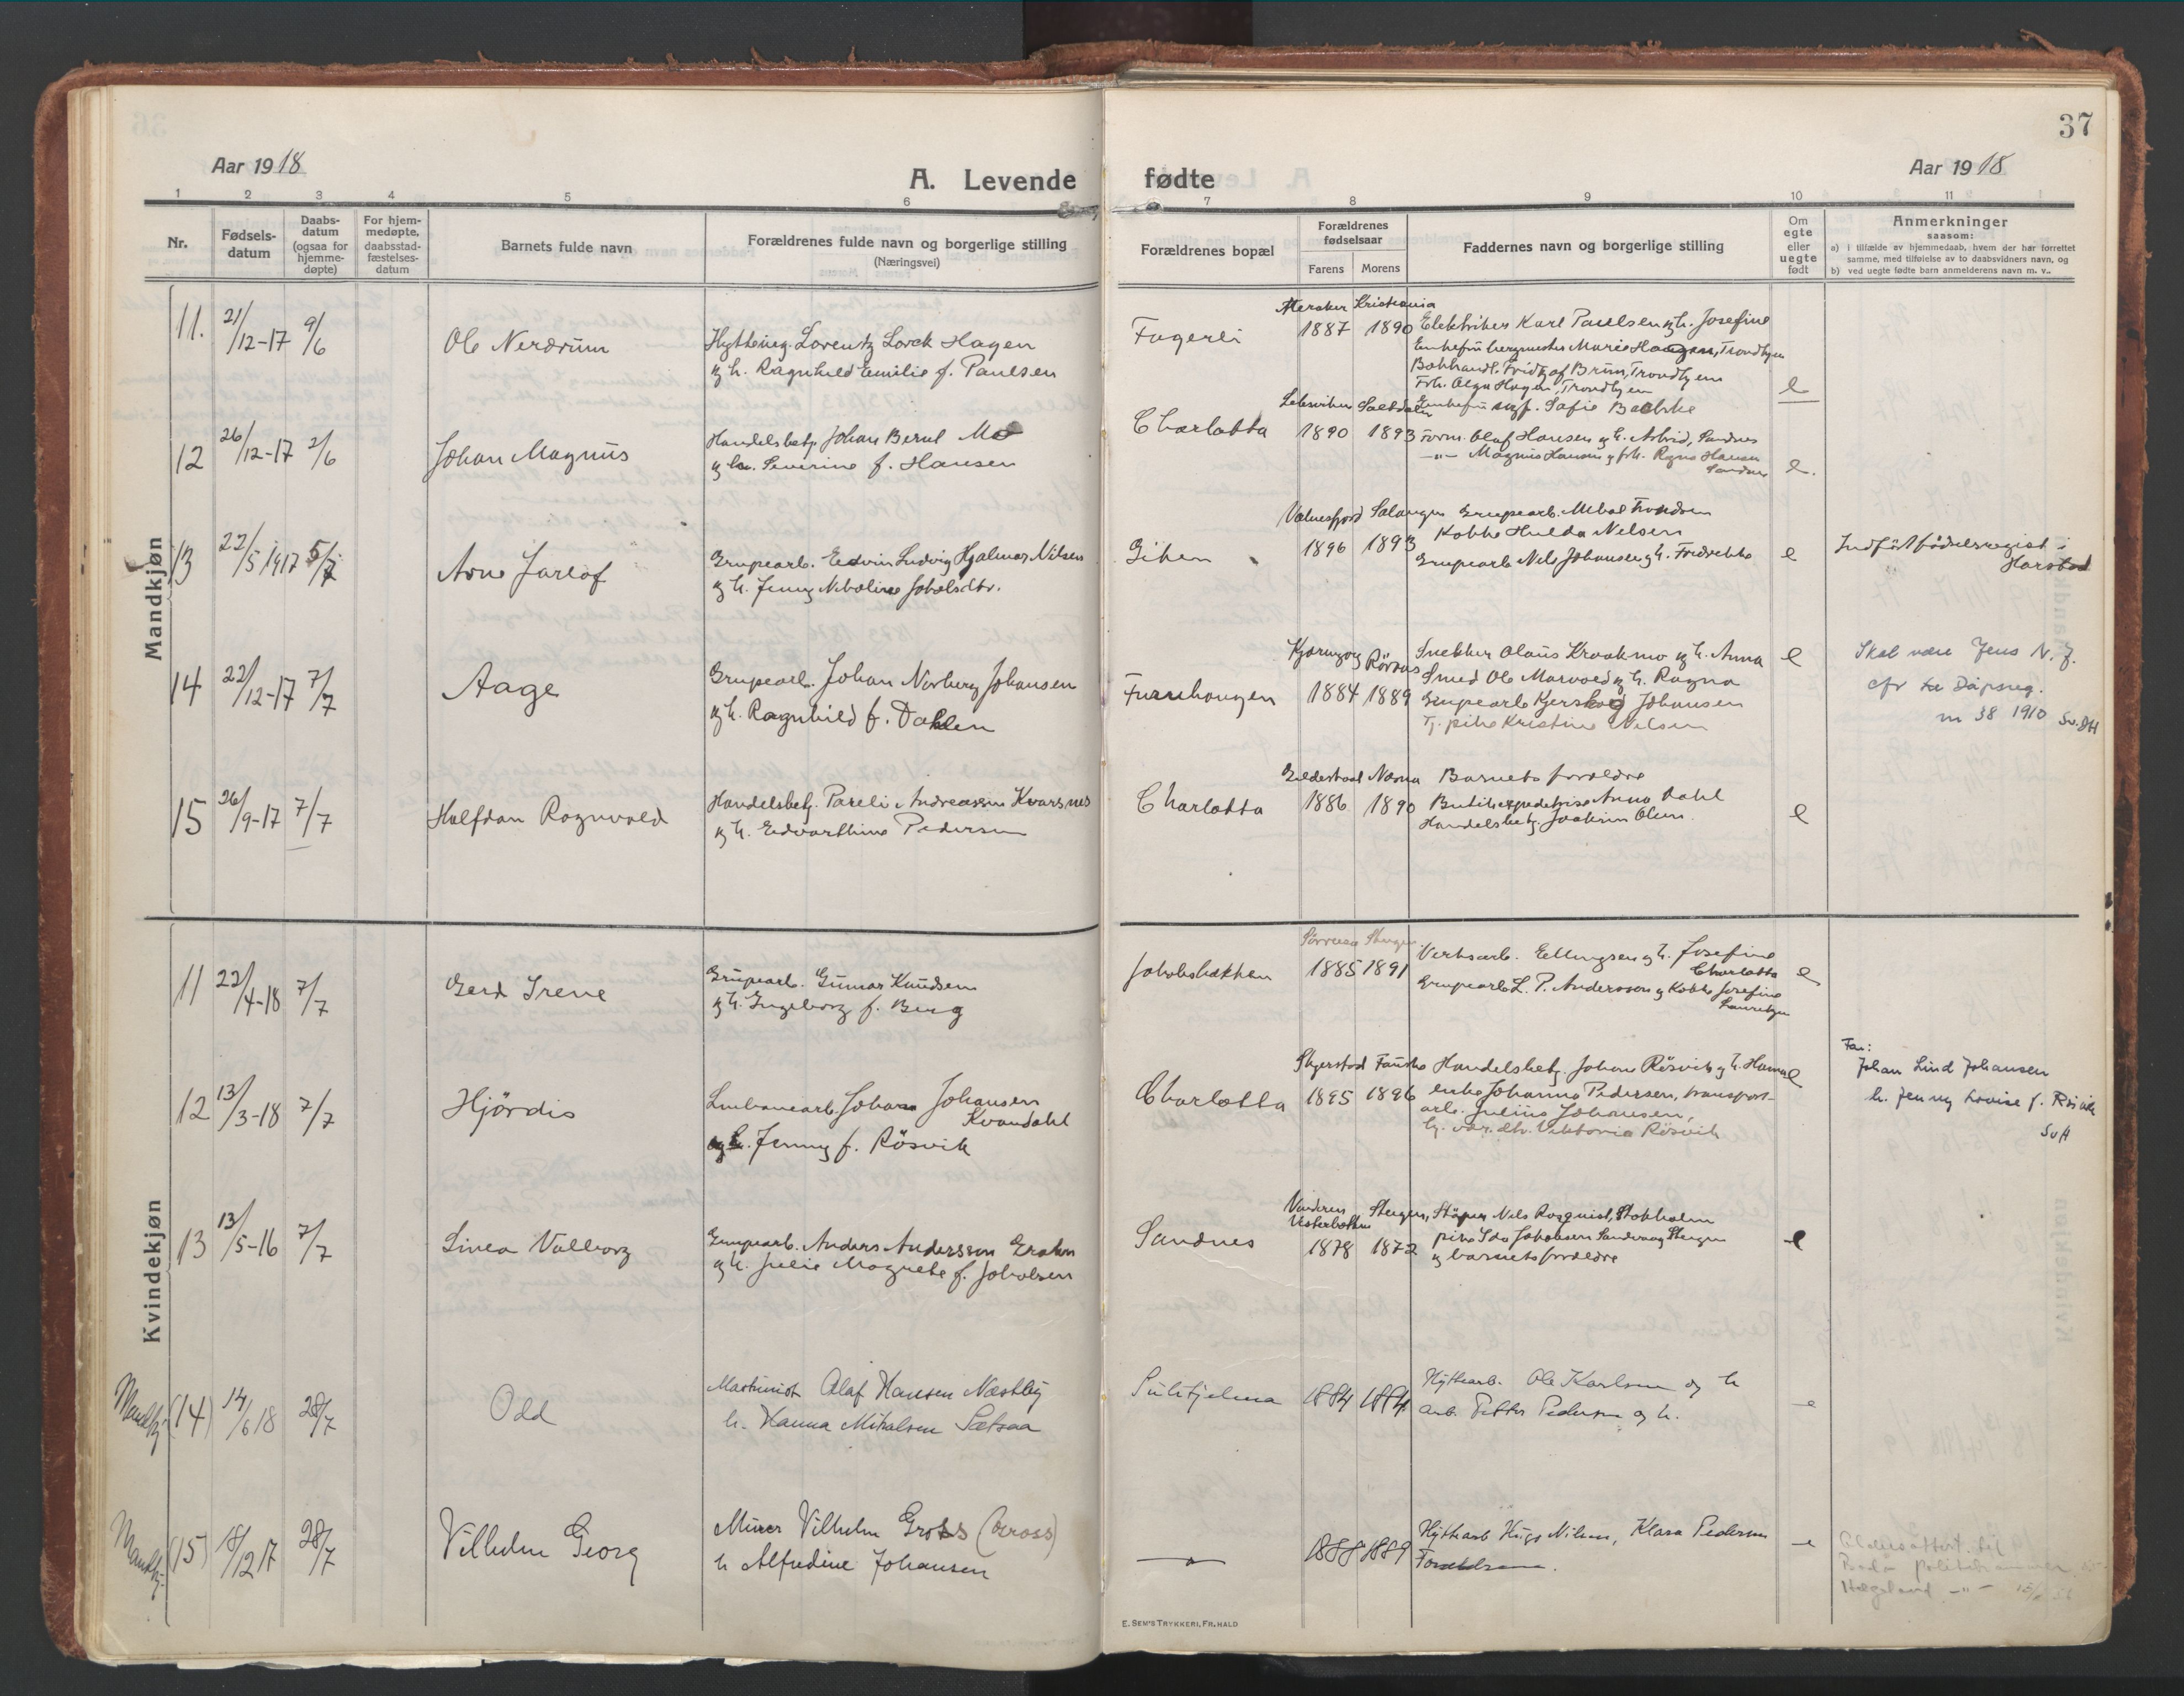 37
Aar 1918
A. Levende fødte
Aar 1918
1 2 3 4 5 6 7 8 9 10 11
Nr.
Fødsels-
datum
Daabs-
datum
(ogsaa for
hjemme-
døpte)
For hjem-
medøpte,
daabsstad-
fæstelses-
datum
Barnets fulde navn
Forældrenes fulde navn og borgerlige stilling
(Næringsvei)
Forældrenes bopæl
Forældrenes
fødselsaar
Farens Morens
Faddernes navn og borgerlige stilling
Om
egte
eller
uegte
født
Anmerkninger
saasom:
a) i tilfælde av hjemmedaab, hvem der har forrettet
samme, med tilføielse av to daabsvidners navn, og
b) ved uegte fødte barn anmelderens navn m. v..
Mandkjøn
11. 21/12-17 9/6
Ole Nerdrum
Hytteing. Lorentz Lorck Hagen
og h. Ragnhild Emilie f. Paulsen
Fagerli
Meraker Kristiania
1887 1890
Elektriker Karl Paulsen og h. Josefine
Enkefru bergmester Marie Hagen, Trondhjem
Bokhandl. Fridtjof Brun, Trondhjem
Frk. Olga Hagen, Trondhjem
e
12 26/12-17 2/6
Johan Magnus
Handelsbetj. Johan Bernt Mo
og h. Severine f. Hansen
Charlotta
Saltdalen
1890 1893
Form. Olaf Hansen og h. Astrid, Sandnes
-"- Magnus Hansen og frk. Ragna Hansen
Sandnes
e.
13 22/5 1917 5/7
Arne Jarlof
Grupearb. Edvin Ludvig Hjalmar Nilsen
og h. Jenny Nikoline Jakobsdtr.
Giken
Valnesfjord Salangen
1896 1893
Grupearb. Mikal Trondsen
Kokke Hulda Nelsen
Grupearb Nils Johansen og h. Fredrikke
e
Indført fødselsregist i
Harstad
14 22/12-17 7/7
Aage
Grupearb. Johan Norberg Johansen
og h. Ragnhild f. Dahlen
Furuhaugen
Kjæringøy Röraas
1884 1889
Snekker Olaus Kraakmo og h. Anna
Smed Ole Marvold og h. Ragna
Grupearb Johansen
Tj. pike Kristine Nelsen
e
Skal være Jens N. J.
cfr Dåpsreg.
nr 38 1910
15 26/9-17 7/7
Halfdan Ragnvald
Handelsbetj. Pareli Andreassen Kvarsnes
og h. Edvarthine Pedersen
Charlotta
Gildeskaal Nærøa
1886 1890
Barnets forældre
Butikexpeditrise Anna Dahl
Handelsbetj. Joakim Olsen.
e
Kvindekjøn
11 22/4-18 7/7
Gerd Irene
Grupearb. Gunnar Knudsen
og h. Ingeborg f. Berg
Jakobsbakken
Sørreisa Steigen
1885 1891
Verksarb. Ellingsen og h. Josefine
Charlotta
Grupearb L. P. Andersson og Kokke Josefine
Lauritzen
e
12 13/3-18 7/7
Hjördis
Linbanearb. Johan Johansen
Kvandahl
og h. Jenny f. Rösvik
Charlotta
Skjerstad Fauske
1895 1896
Handelsbetj. Johan Rösvik og h. Hanna
enke Johanna Pedersen, transport-
arb. Julius Johansen,
Viktoria Rösvik
e
Far:
Johan Lind Johansen
h. Jenny Lovise f. Rösvik
SvH
13 13/5-16 7/7
Linea Valborg
Grupearb. Anders Andersson
og h. Julie Magrete f. Jakobsen
Sandnes
Vesterbotten Steigen,
1878 1872
Støper Nils Rosquist, Stokholm
pike Ida Jakobsen Sandvaag Steigen
og barnets forældre
e
Mandkj. (14) 14/6 18 28/7
Odd
Maskinist Olaf Hansen Næstby
h. Hanna Mikalsen Sætraa
Sulitjelma
1884 1894
Hyttearb. Ole Karlsen og h
arb. Petter Pedersen og h.
e
Mandkj. (15) 18/12 17 28/7
Vilhelm Georg
Murer Vilhelm Gross (Gross)
h Alfredine Johansen
—"—
1888 1889
Hyttearb Hugo Nilsen, Klara Pedersen
Forældrene.
e
Aldersattest til
Bodø politikammer
E. SEM'S TRYKKERI, FR.HALD